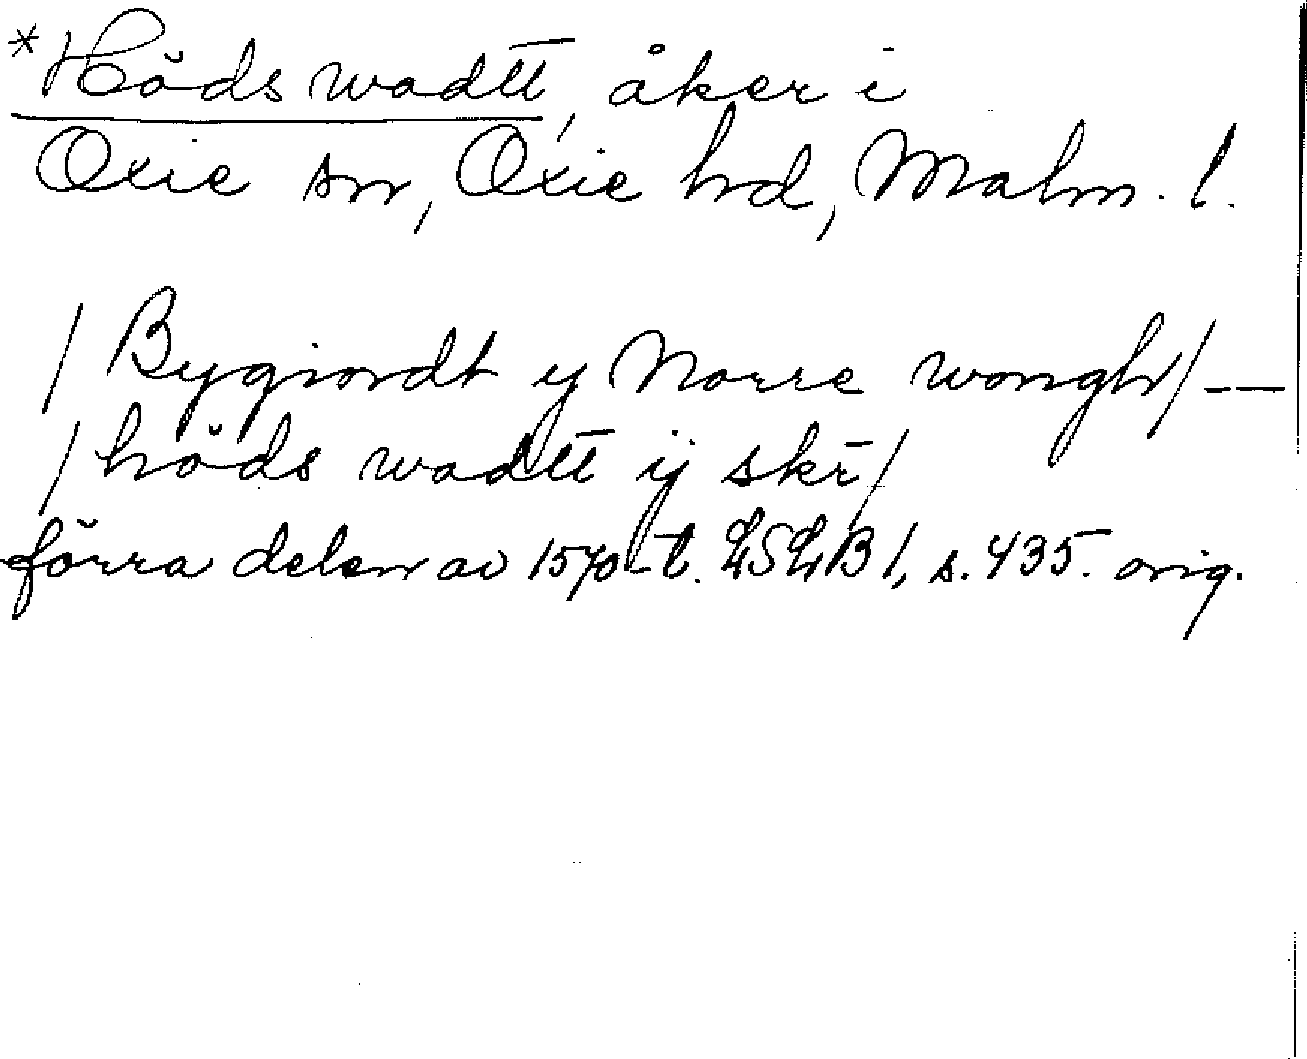 *Höds wadtt, åker i
Oxie sn, Oxie hd, Malm. l.
/ Bygiordt y Norre wongh/ — —
/ höds wadtt ij skr/
förra delen av 1570-t. LSLB 1, s. 435. orig.